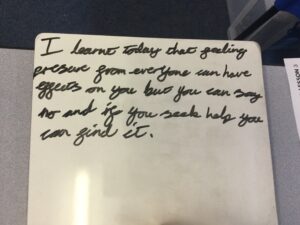 I learnt today that feeling
presure from everyone can have
effects on you but you can say
no and if you seek help you
can find it.